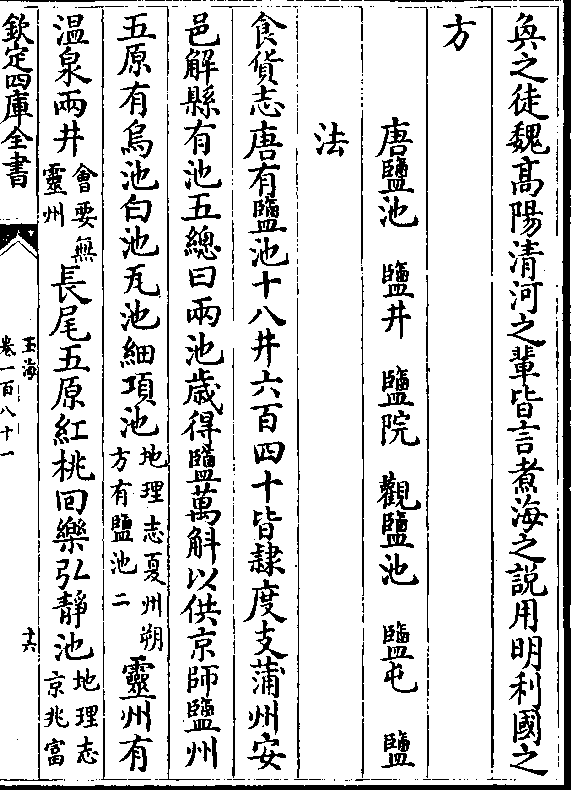 奐之徒魏髙陽清河之輩皆言煮海之說用明利國之
方
唐鹽池　鹽井　鹽院　觀鹽池　鹽屯　鹽
法
食貨志唐有鹽池十八井六百四十皆隷度支蒲州安
邑解縣有池五總曰兩池歳得鹽萬斛以供京師鹽州
五原有烏池白池瓦池細項池地理志夏州朔方有鹽池二靈州有
温泉兩井㑹要無靈州長尾五原紅桃囘樂弘靜池地理志京兆富
欽定四庫全書
玉海
卷一百八十一
十六